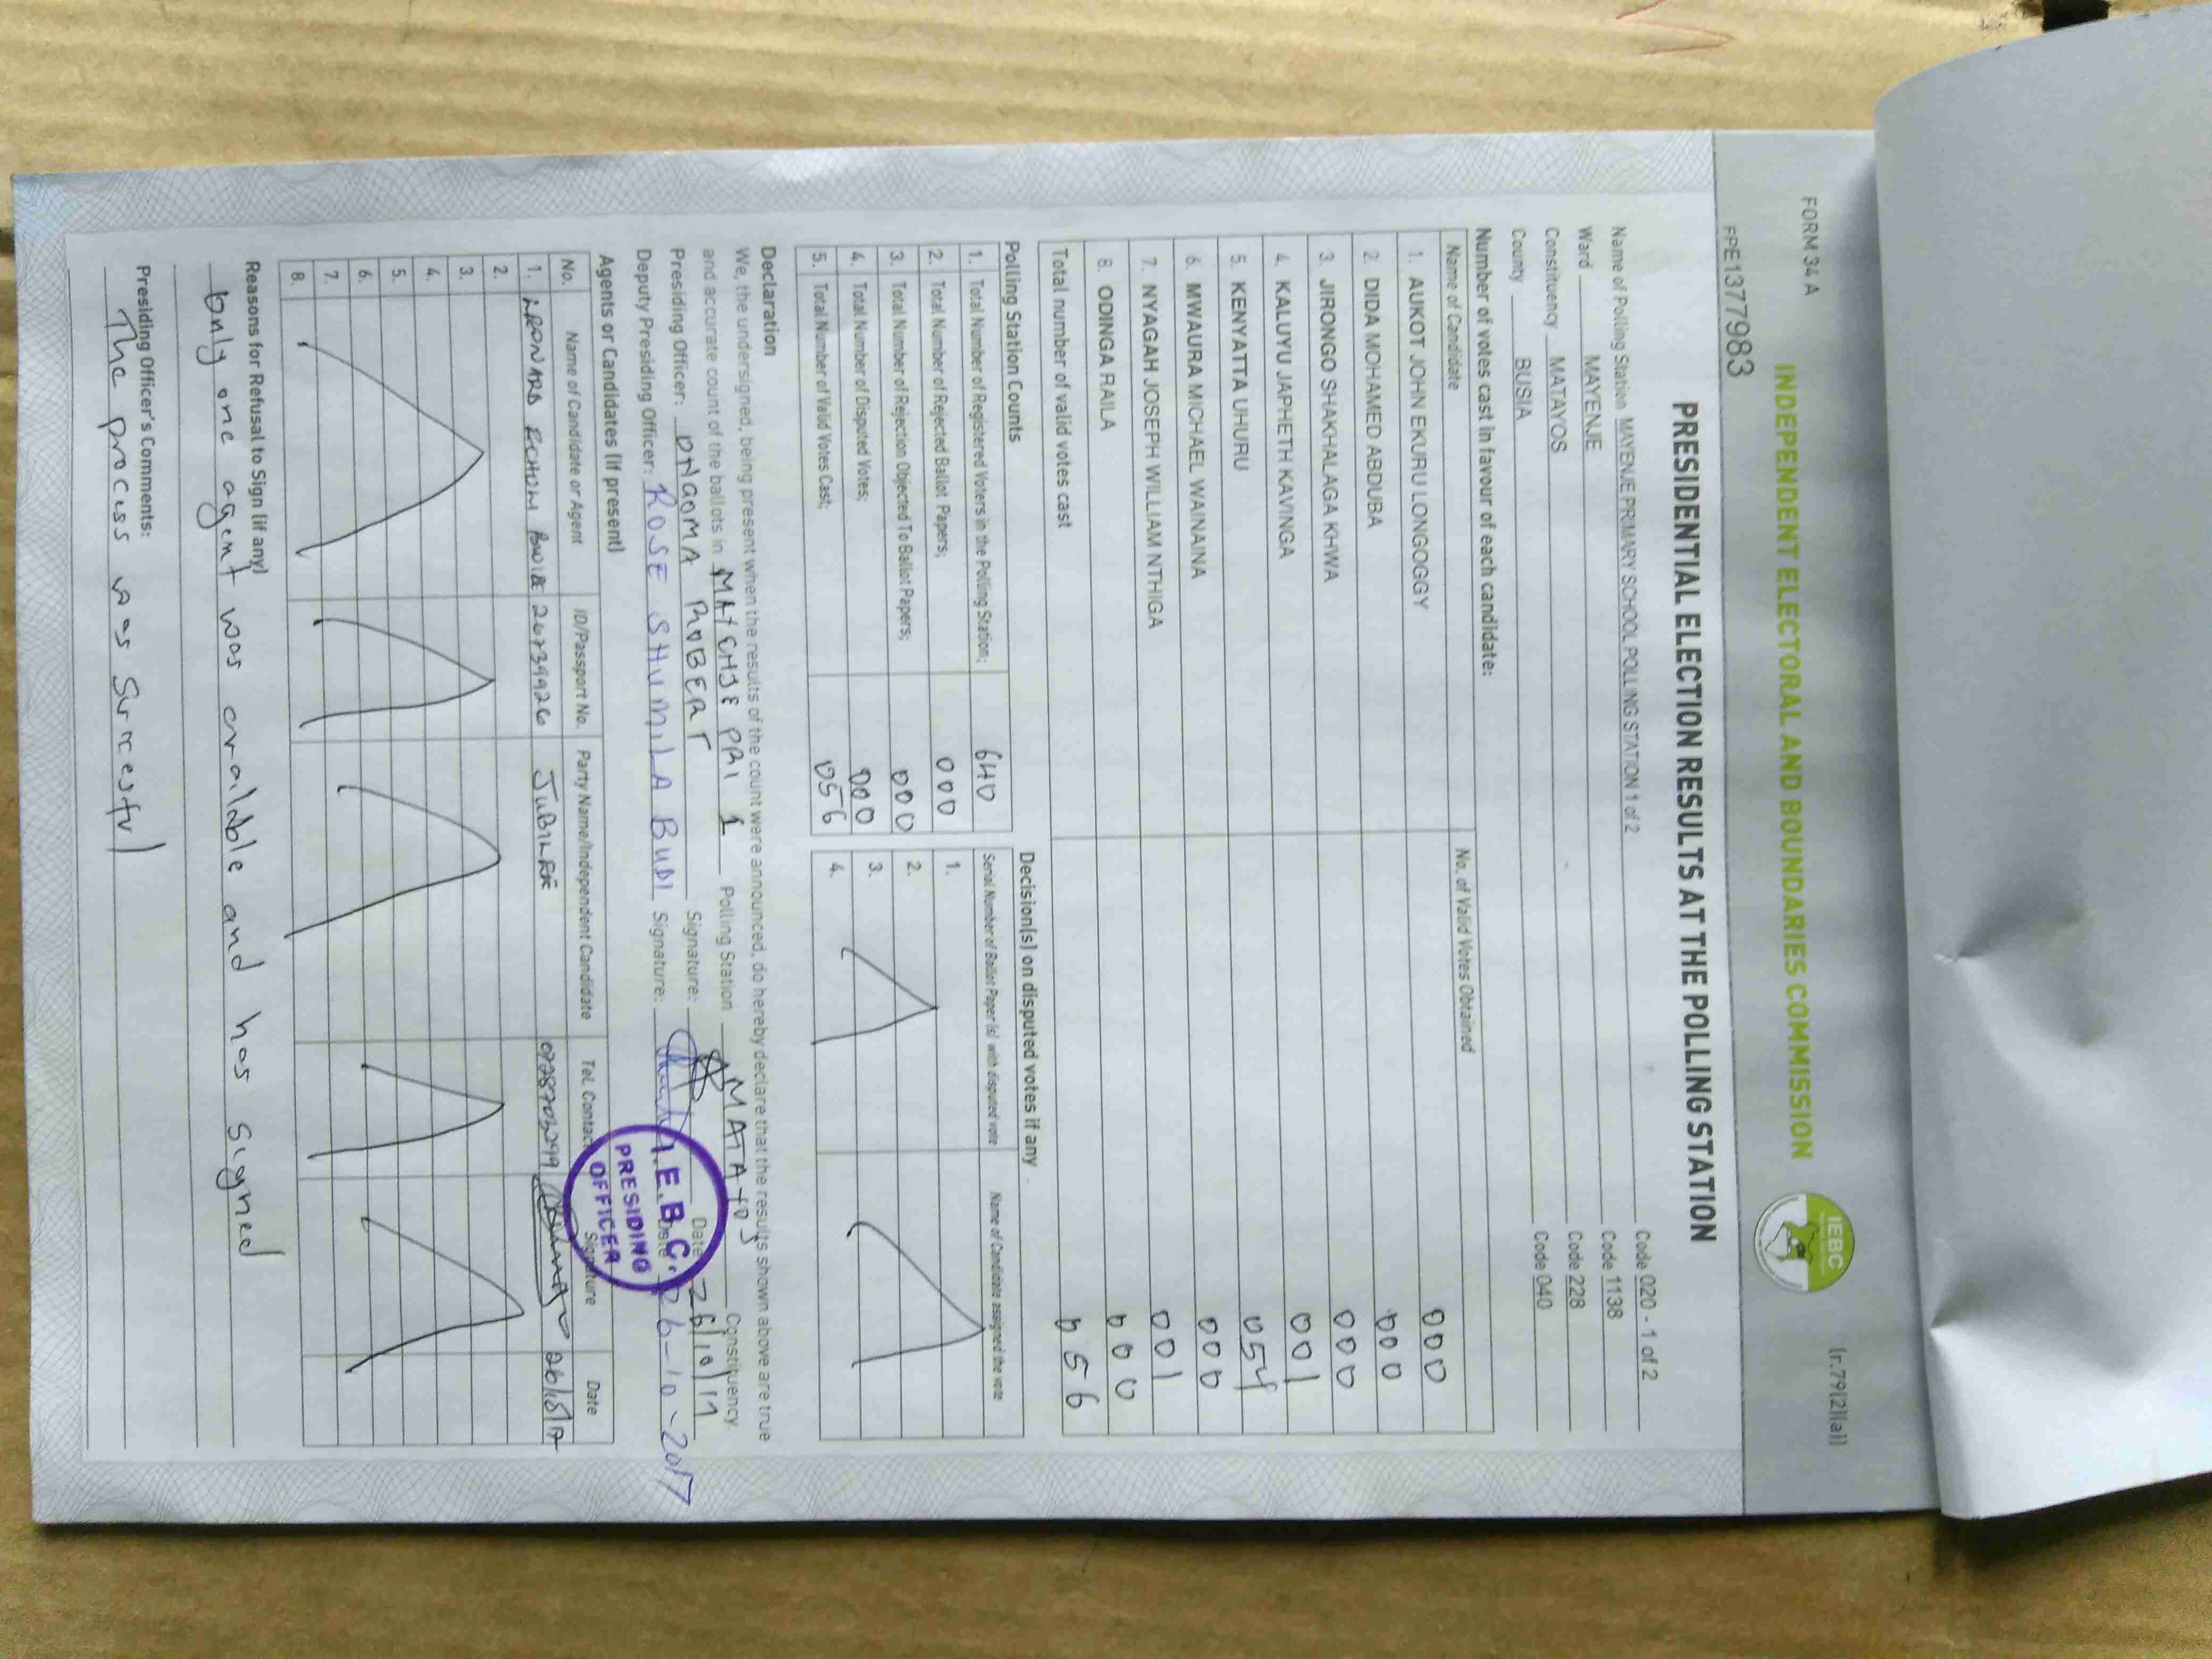 FORM 34 A
(r.79(2)(a))
INDEPENDENT ELECTORAL AND BOUNDARIES COMMISSION
IEBC
FPE1377983
PRESIDENTIAL ELECTION RESULTS AT THE POLLING STATION
Name of Polling Station MAYENJE PRIMARY SCHOOL POLLING STATION 1 of 2 Code 020 - 1 of 2
Ward MAYENJE Code 1138
Constituency MATAYOS Code 228
County BUSIA Code 040
Number of votes cast in favour of each candidate:
Name of Candidate No. of Valid Votes Obtained
1. AUKOT JOHN EKURU LONGOGGY 000
2. DIDA MOHAMED ABDUBA 000
3. JIRONGO SHAKHALAGA KHWA 000
4. KALUYU JAPHETH KAVINGA 001
5. KENYATTA UHURU 054
6. MWAURA MICHAEL WAINAINA 000
7. NYAGAH JOSEPH WILLIAM NTHIGA 001
8. ODINGA RAILA 000
Total number of valid votes cast 056
Polling Station Counts
1. Total Number of Registered Voters in the Polling Station; 640
2. Total Number of Rejected Ballot Papers; 000
3. Total Number of Rejection Objected To Ballot Papers; 000
4. Total Number of Disputed Votes; 000
5. Total Number of Valid Votes Cast; 056
Decision(s) on disputed votes if any
Serial Number of Ballot Paper(s) with disputed vote Name of Candidate assigned the vote
1.
2.
3.
4.
Declaration
We, the undersigned, being present when the results of the count were announced, do hereby declare that the results shown above are true
and accurate count of the ballots in PRI 1 Polling Station MATAYOS Constituency.
Presiding Officer: ROBERT Signature: Date 26/10/17
Deputy Presiding Officer: ROSE SHUMILA BUDI Signature: Date 26-10-2017
I.E.B.C.
PRESIDING
OFFICER
Agents or Candidates (if present)
No. Name of Candidate or Agent ID/Passport No. Party Name/Independent Candidate Tel. Contact Signature Date
1. JUBILEE
2.
3.
4.
5.
6.
7.
8.
Reasons for Refusal to Sign (if any)
only one agent was available and has signed
Presiding Officer's Comments:
The process was Successful